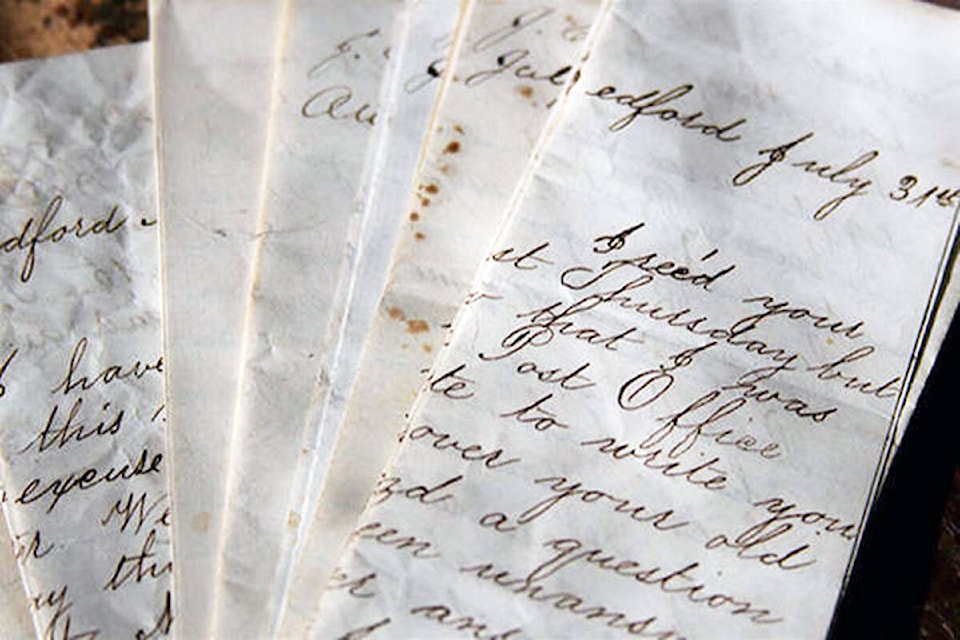 dford
have
this
excuse
We
thi
Au
J.
Jul
edford July 31st
I rec'd your
st Thursday but
that I was
Post Office
te to write you
over your old
nd a question
een unans
er ans